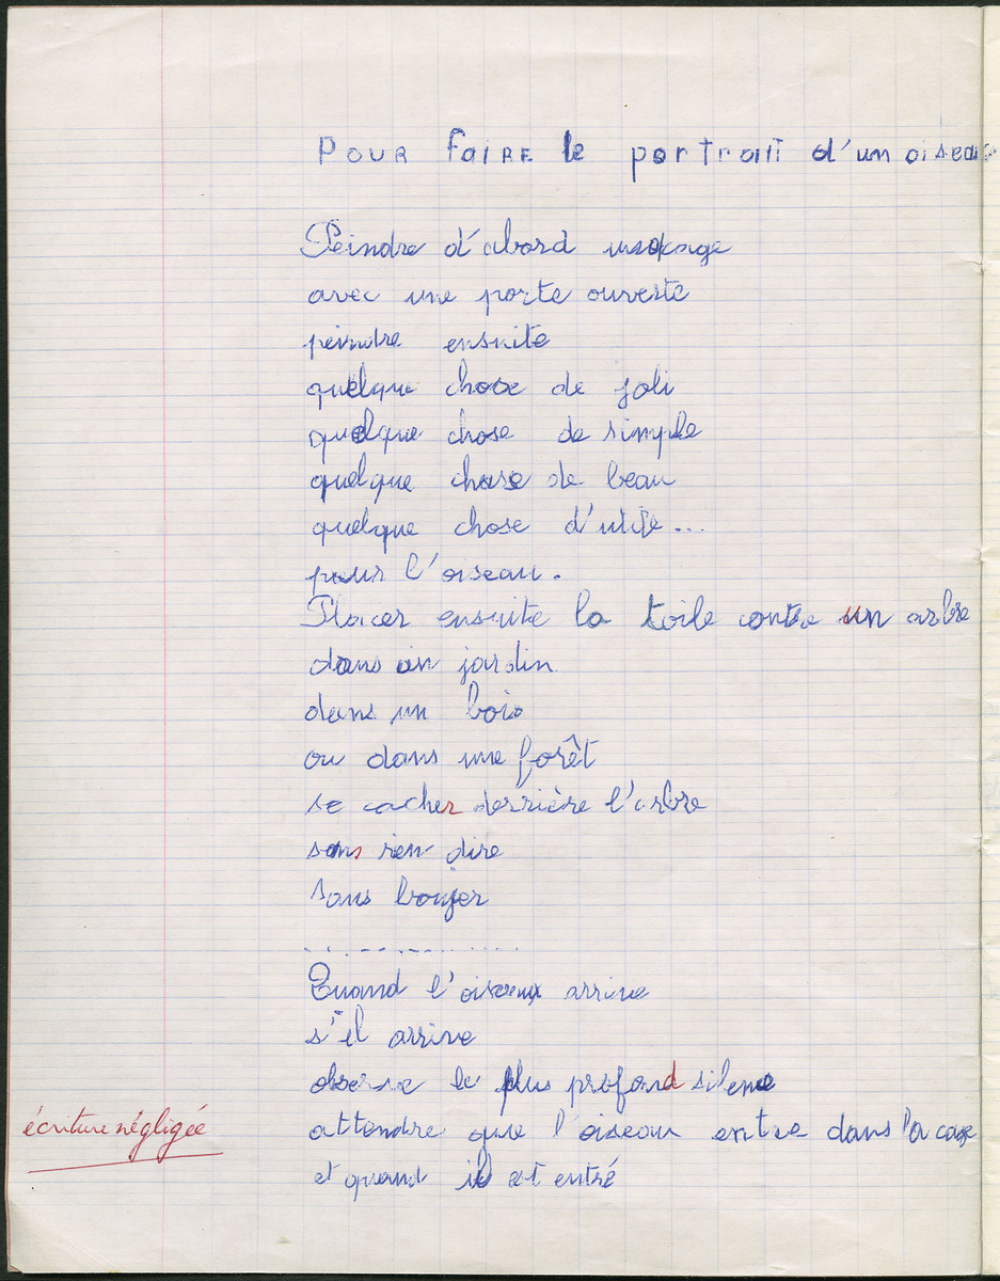 Pour faire le portrait d'un oiseau
Peindre d'abord une cage
avec une porte ouverte
peindre ensuite
quelque chose de joli
quelque chose de simple
quelque chose de beau
quelque chose d'utile...
pour l'oiseau.
Placer ensuite la toile contre un arbre
dans un jardin
dans un bois
ou dans une forêt
se cacher derrière l'arbre
sans rien dire
sans bouger
..............
Quand l'oiseau arrive
s'il arrive
observe le plus profond silence
écriture négligée
attendre que l'oiseau entre dans la cage
et quand il est entré